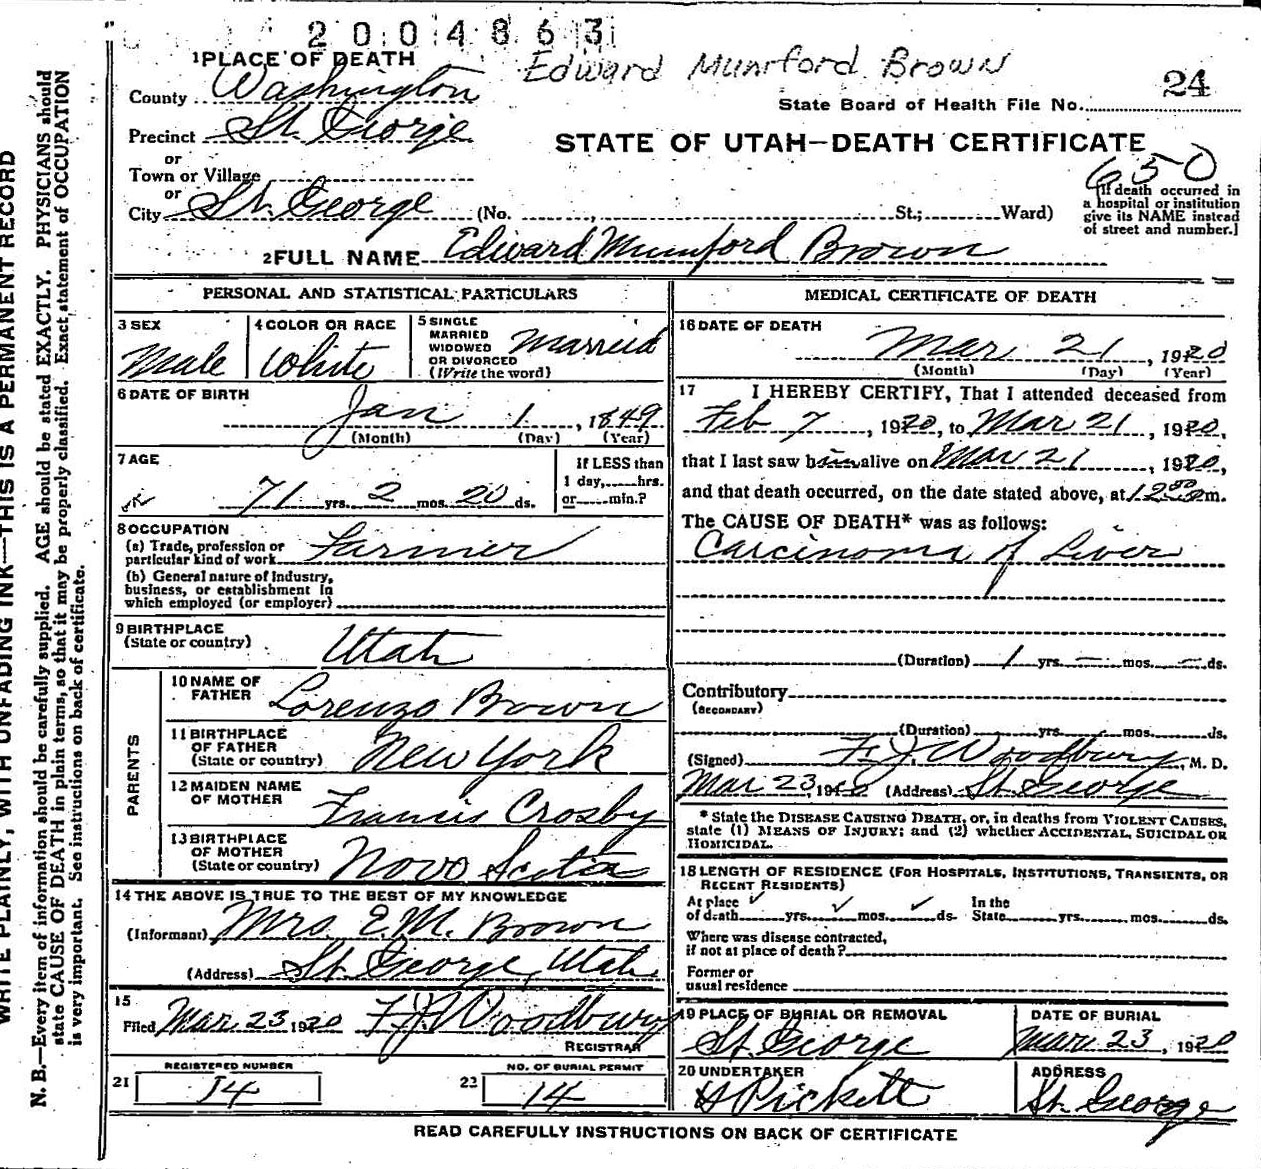 2004863
Edward Mumford Brown
24
1 PLACE OF DEATH
County Washington
State Board of Health File No.
Precinct St. George
STATE OF UTAH—DEATH CERTIFICATE
or
Town or Village
650
or
City St. George (No. , St.; Ward)
[If death occurred in
a hospital or institution
give its NAME instead
of street and number.]
2 FULL NAME Edward Mumford Brown
PERSONAL AND STATISTICAL PARTICULARS
3 SEX
Male
4 COLOR OR RACE
White
5 SINGLE
MARRIED
WIDOWED
OR DIVORCED
(Write the word)
Married
6 DATE OF BIRTH
Jan 1, 1849
(Month) (Day) (Year)
7 AGE
71 yrs. 2 mos. 20 ds.
If LESS than
1 day, hrs.
or min.?
8 OCCUPATION
(a) Trade, profession or
particular kind of work Farmer
(b) General nature of Industry,
business, or establishment in
which employed (or employer)
9 BIRTHPLACE
(State or country) Utah
PARENTS
10 NAME OF
FATHER Lorenzo Brown
11 BIRTHPLACE
OF FATHER
(State or country) New York
12 MAIDEN NAME
OF MOTHER Francis Crosby
13 BIRTHPLACE
OF MOTHER
(State or country) Novo Scotia
14 THE ABOVE IS TRUE TO THE BEST OF MY KNOWLEDGE
(Informant) Mrs. E. M. Brown
(Address) St. George, Utah
15
Filed Mar. 23 1920 F. J. Woodbury
REGISTRAR
REGISTERED NUMBER
21 14
NO. OF BURIAL PERMIT
22 14
MEDICAL CERTIFICATE OF DEATH
16 DATE OF DEATH
Mar 21, 1920
(Month) (Day) (Year)
17 I HEREBY CERTIFY, That I attended deceased from
Feb 7, 1920, to Mar 21, 1920,
that I last saw him alive on Mar 21, 1920,
and that death occurred, on the date stated above, at m.
The CAUSE OF DEATH* was as follows:
Carcinoma of Liver
(Duration) 1 yrs. — mos. — ds.
Contributory
(SECONDARY)
(Duration) yrs. mos. ds.
(Signed) F. J. Woodbury, M. D.
Mar 23, 1920 (Address) St. George
* State the DISEASE CAUSING DEATH, or, in deaths from VIOLENT CAUSES,
state (1) MEANS OF INJURY; and (2) whether ACCIDENTAL, SUICIDAL OR
HOMICIDAL.
18 LENGTH OF RESIDENCE (FOR HOSPITALS, INSTITUTIONS, TRANSIENTS, OR
RECENT RESIDENTS)
At place In the
of death yrs. mos. ds. State yrs. mos. ds.
Where was disease contracted,
if not at place of death?
Former or
usual residence
19 PLACE OF BURIAL OR REMOVAL
St. George
DATE OF BURIAL
Mar. 23, 1920
20 UNDERTAKER
Pickett
ADDRESS
St. George
READ CAREFULLY INSTRUCTIONS ON BACK OF CERTIFICATE
WRITE PLAINLY, WITH UNFADING INK—THIS IS A PERMANENT RECORD
N. B.—Every item of information should be carefully supplied. AGE should be stated EXACTLY. PHYSICIANS should
state CAUSE OF DEATH in plain terms, so that it may be properly classified. Exact statement of OCCUPATION
is very important. See instructions on back of certificate.